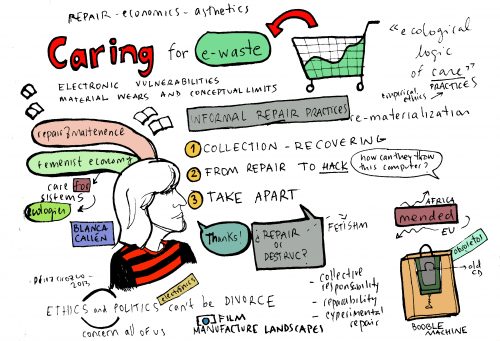 REPAIR - economics - aesthetics
Caring for e-waste
ELECTRONIC VULNERABILITIES
MATERIAL WEARS AND CONCEPTUAL LIMITS
"ecological
logic
of care"
PRACTICES
empirical
ethics
INFORMAL REPAIR PRACTICES
re-materialization
1 COLLECTION - RECOVERING
2 FROM REPAIR TO HACK
3 TAKE APART
how can they throw
this computer?
repair & maitenence
feminist economy
care for
sistems
ecologies
BLANCA
CALLÉN
2013
electronics
Thanks!
¿REPAIR
or
DESTRUC?
FETISHM
AFRICA
mended
EU
obsoletos
old
CD
BOOBLE
MACHINE
- collective
responsability
- reparability
- experimental
repair
ETHICS and POLITICS can't be DIVORCE
concern all of us
FILM
MANUFACTURE LANDSCAPES